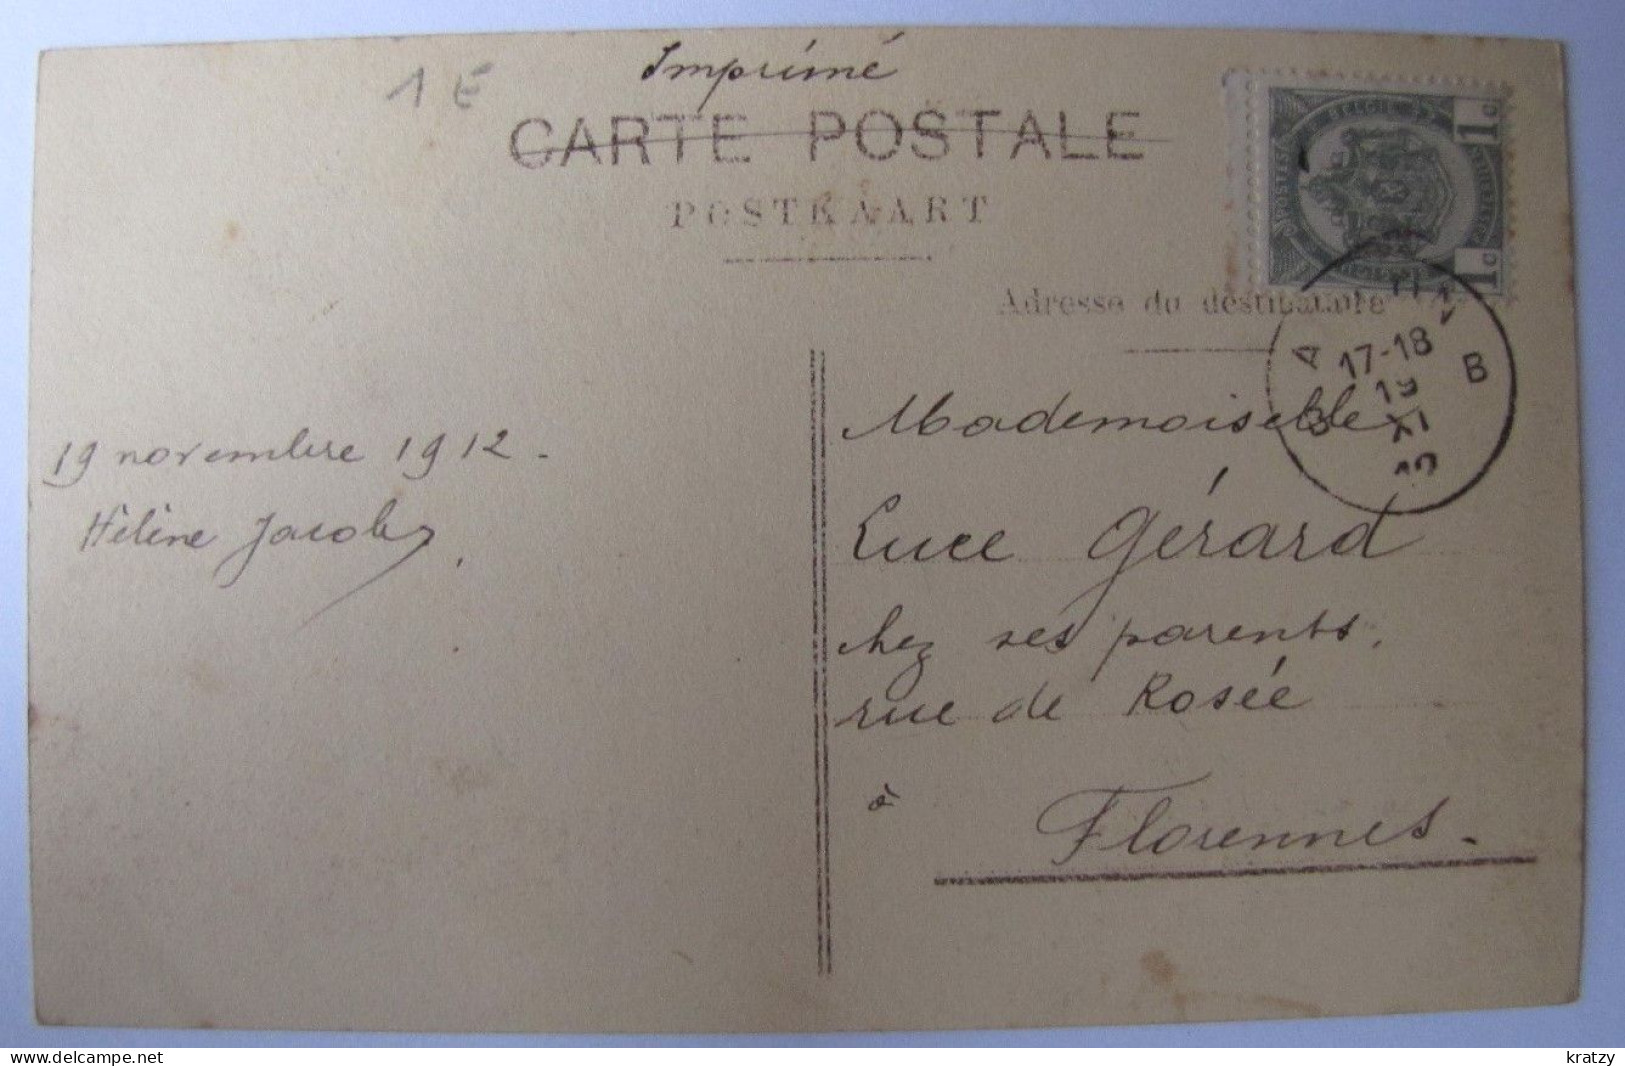 1 E
Imprimé
CARTE POSTALE
POSTKAART
Adresse du destinataire
POSTES BELGIQUE
1c
1c
17-18
19
XI
12
B
19 novembre 1912.
Hélène Jacobs.
Mademoiselle
Luce Gérard
chez ses parents,
rue de Rosée
à
Florennes.
www.delcampe.net
kratzy